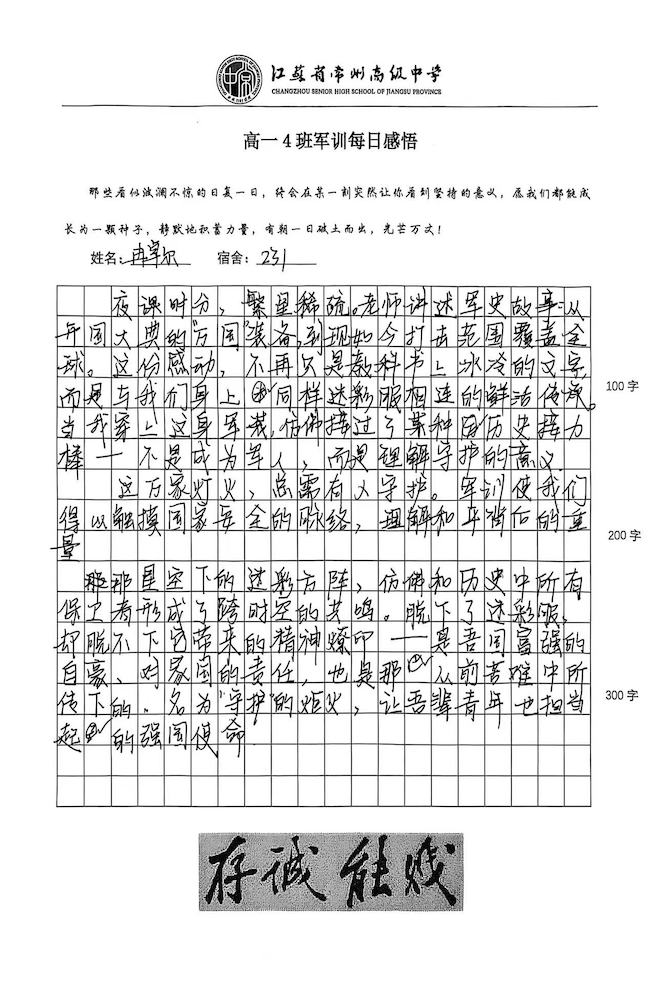 江苏省常州高级中学
CHANGZHOU SENIOR HIGH SCHOOL OF JIANGSU PROVINCE
高一4班军训每日感悟
那些看似波澜不惊的日复一日，终会在某一刻突然让你看到坚持的意义，愿我们都能成
长为一颗种子，静默地积蓄力量，有朝一日破土而出，光芒万丈！
姓名：冉卓尔 宿舍：231
夜课时分，繁星稀疏。老师讲述军史故事：从
开国大典的“万国”装备，到现如今打击范围覆盖全
球。这份感动，不再只是教科书上冰冷的文字，
而是与我们身上同样迷彩服相连的鲜活传承。 100字
当我穿上这身军装，仿佛接过了某种历史接力
棒——不是成为军人，而是理解守护的意义。
这万家灯火，总需有人守护。军训使我们
得以触摸国家安全的脉络，理解和平背后的重 200字
量
那星空下的迷彩方阵，仿佛和历史中所有
保卫者形成了跨时空的共鸣。脱下了迷彩服，
却脱不下它带来的精神烙印——是吾国富强的
自豪、对家国的责任，也是那从前苦难中所
传下的，名为“守护”的炬火，让吾辈青年也担当 300字
起的强国使命
存诚能贱